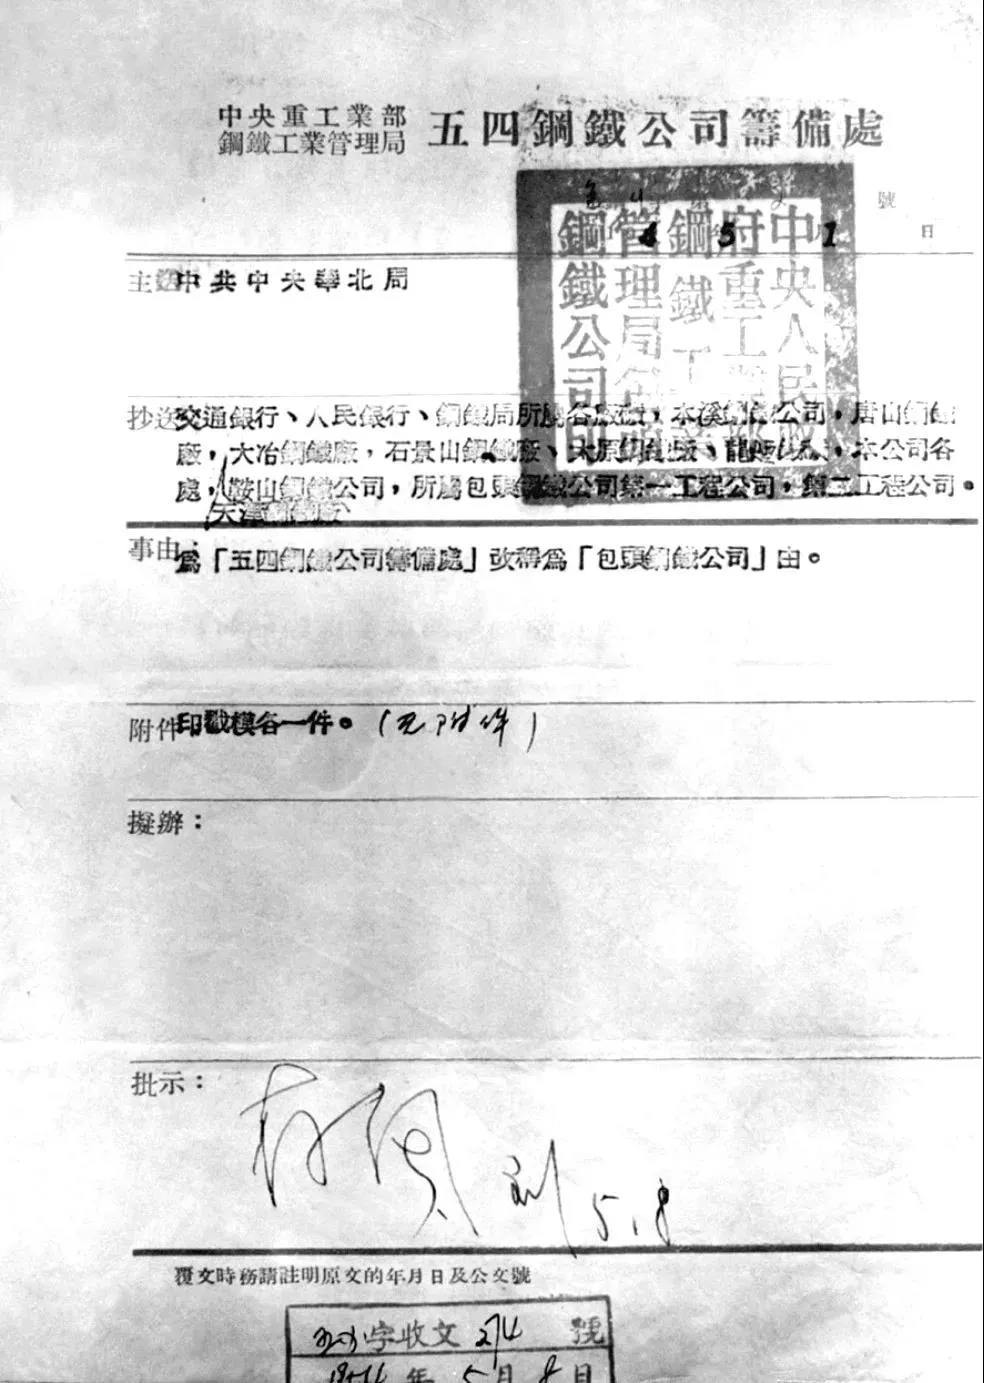 中央重工業部
鋼鐵工業管理局
五四鋼鐵公司籌備處
號
4 5 1 日
中央人民政
府重工業部
鋼鐵工業
管理局包頭
鋼鐵公司印
主送 中共中央華北局
抄送 交通銀行、人民銀行、鋼鐵局所屬各廠礦，本溪鋼鐵公司，唐山鋼鐵
廠，大冶鋼鐵廠，石景山鋼鐵廠、太原鋼鐵廠、龍煙鐵礦、本公司各
處，鞍山鋼鐵公司，所屬包頭鋼鐵公司第一工程公司，第二工程公司。
天津鋼鐵廠
事由：
為「五四鋼鐵公司籌備處」改稱為「包頭鋼鐵公司」由。
附件 印戳模各一件。（无附件）
擬辦：
批示：
5.8
覆文時務請註明原文的年月日及公文號
字收文 274 號
1954 年 5 月 8 日